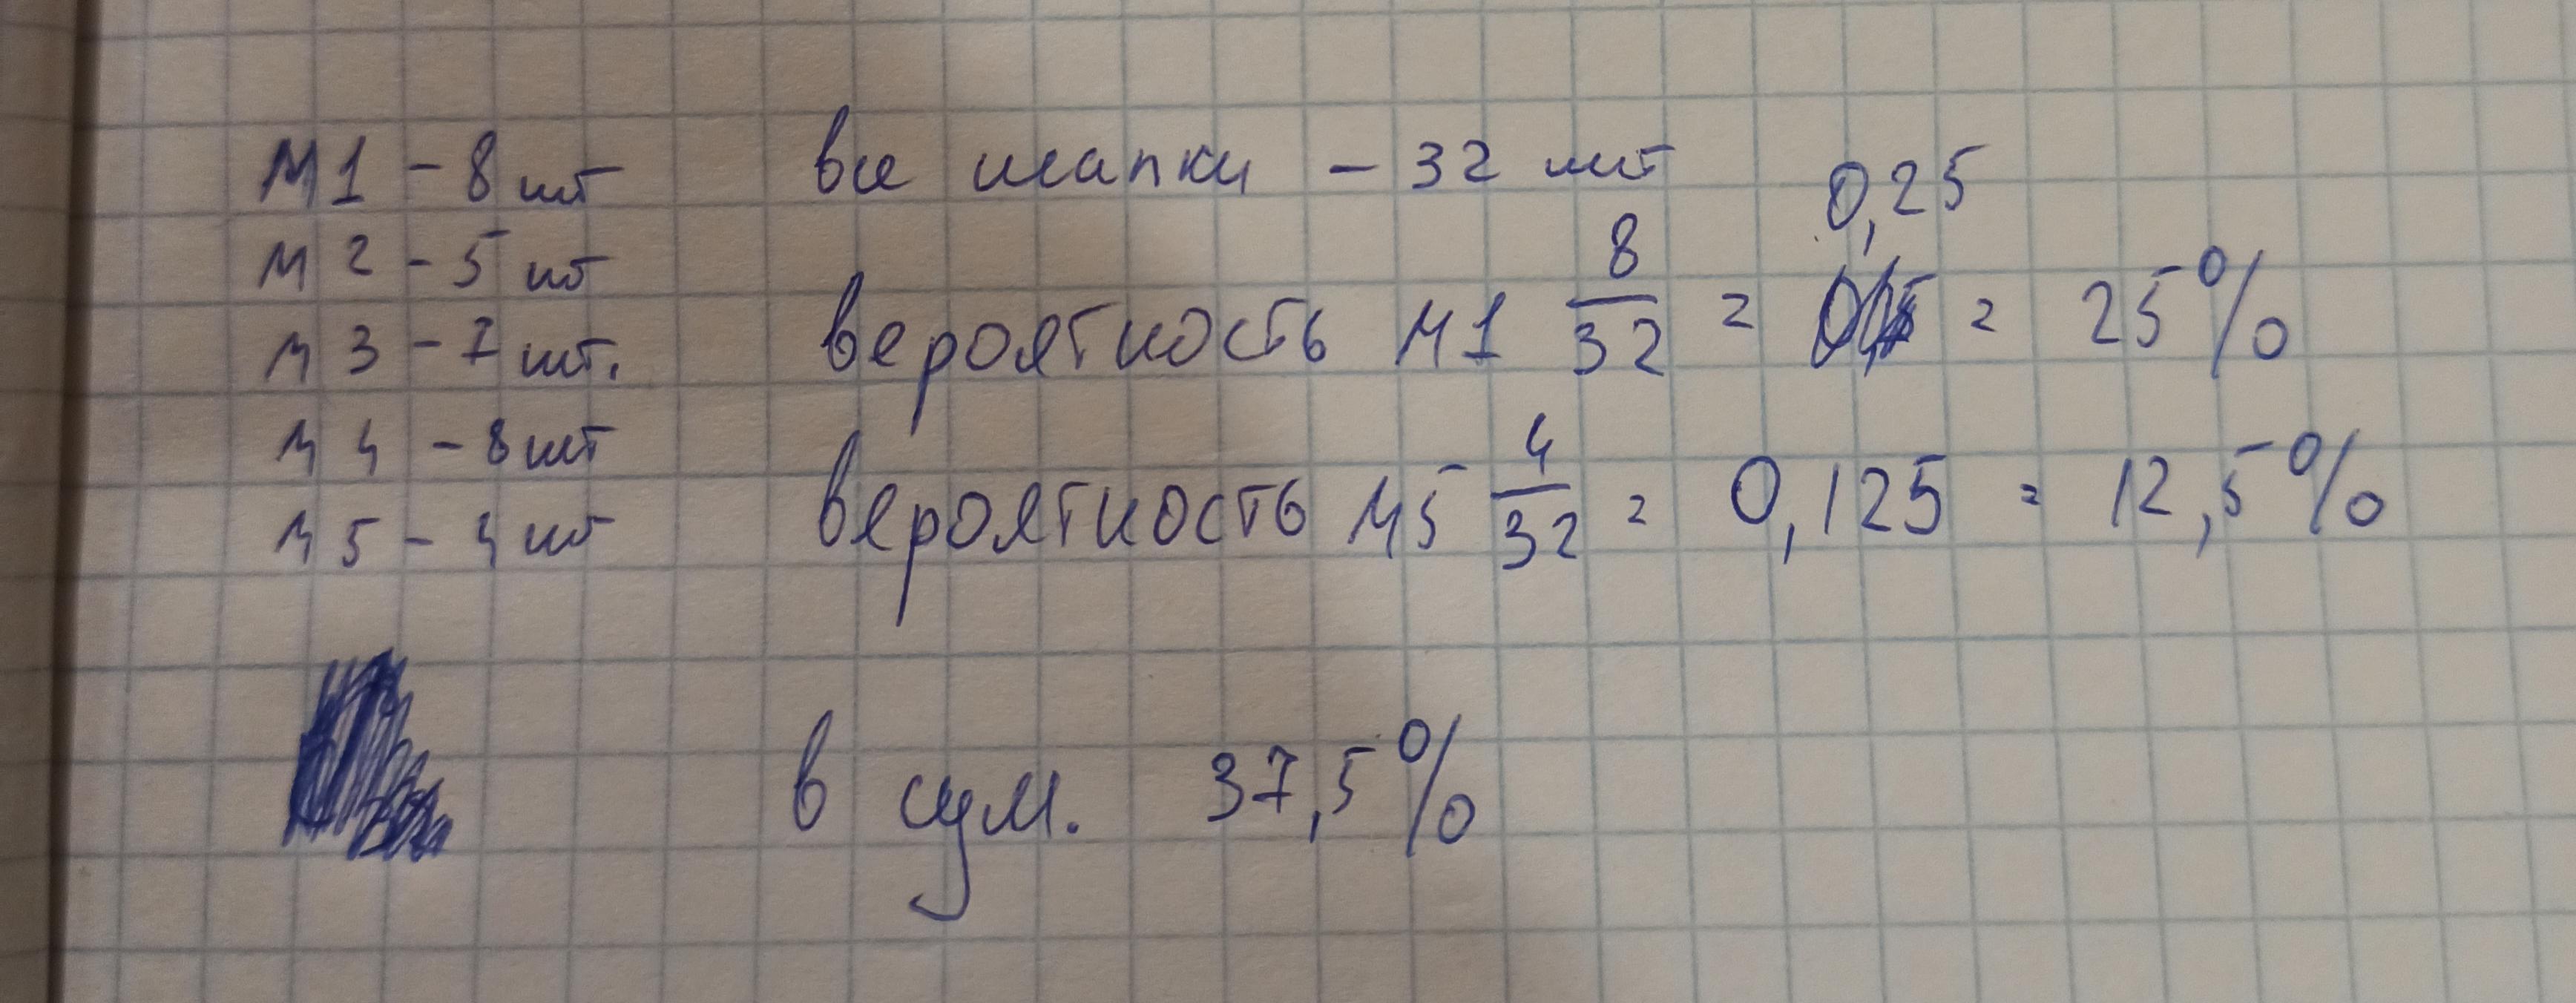 М1 - 8 шт
М2 - 5 шт
М3 - 7 шт.
М4 - 8 шт
М5 - 4 шт
все шапки - 32 шт
0,25
вероятность М1 8/32 = = 25%
вероятность М5 4/32 = 0,125 = 12,5%
в сум. 37,5%